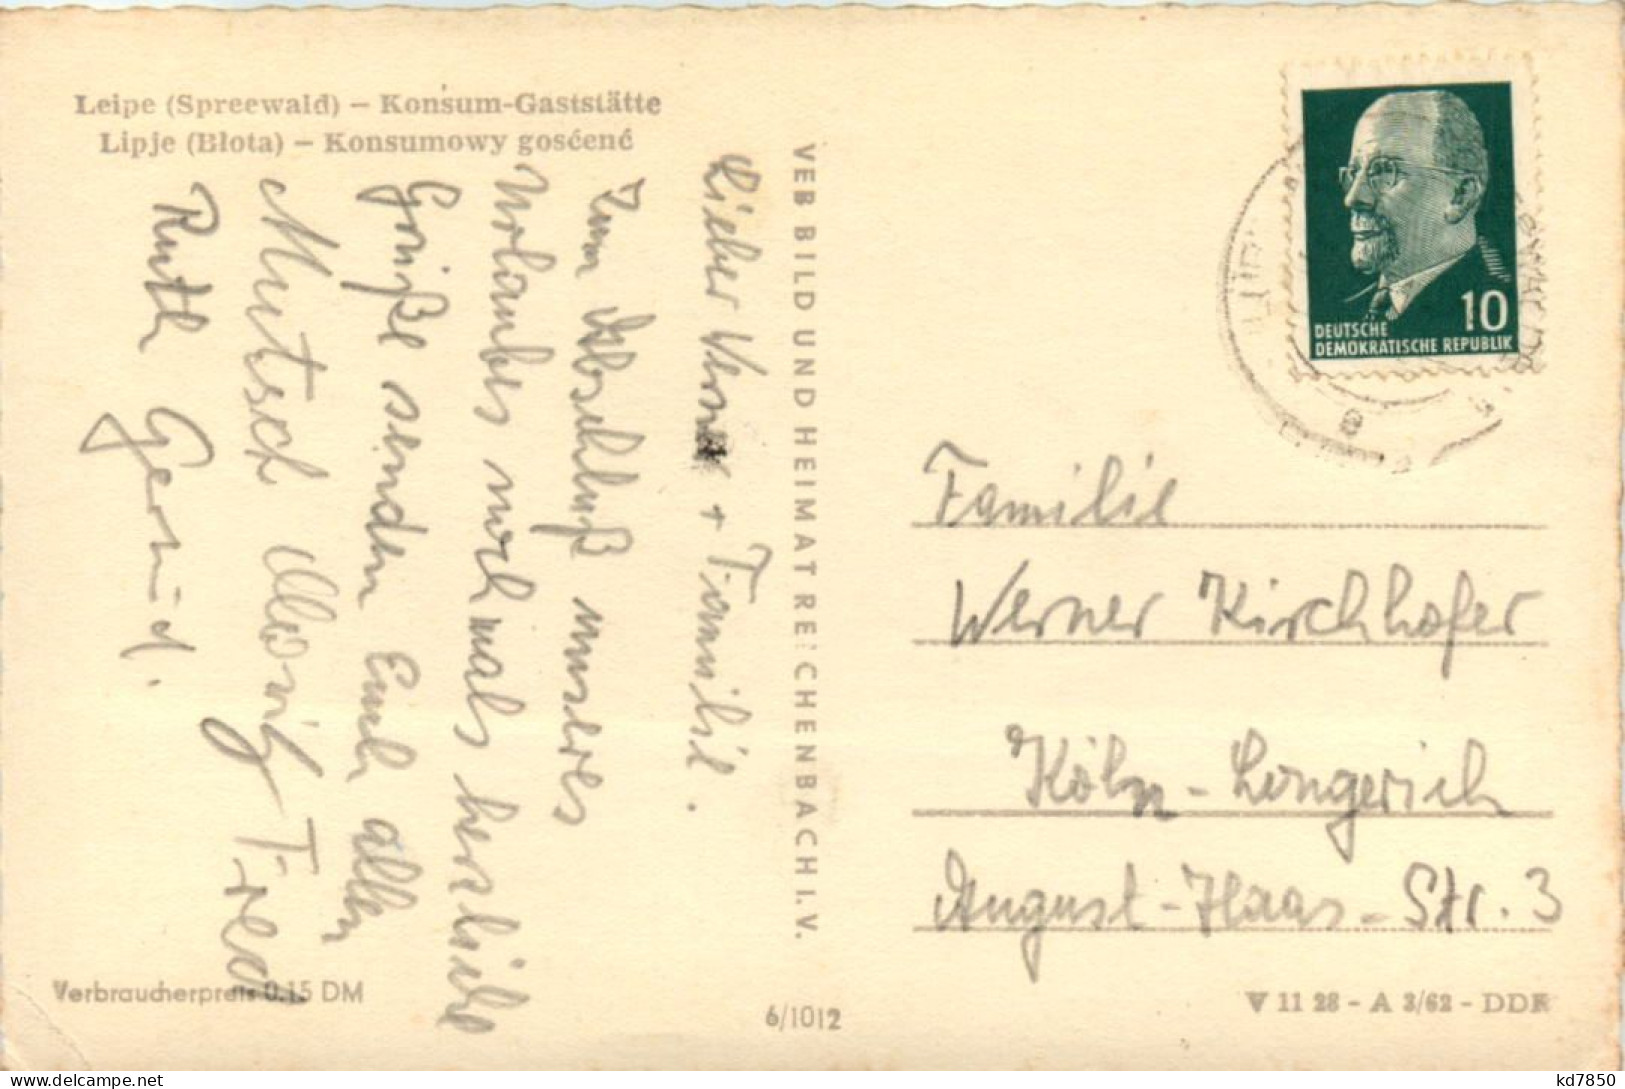 Leipe (Spreewald) – Konsum-Gaststätte
Lipje (Błota) – Konsumowy gosćenć
Lieber Werner + Familie.
Zum Abschluß unseres
Urlaubes nochmals herzliche
Grüße senden Euch allen
Mutsch Fred
Ruth Gernid.
VEB BILD UND HEIMAT REICHENBACH I. V.
10
DEUTSCHE
DEMOKRATISCHE REPUBLIK
Familie
Werner Kirchhofer
Köln-Longerich
August-Haas-Str. 3
Verbraucherpreis 0.15 DM
6/1012
V 11 28 - A 3/62 - DDR
kd7850